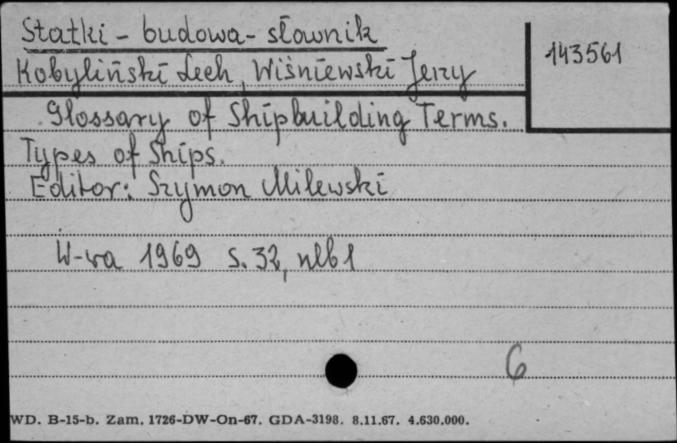 Statki - budowa - słownik
143561
Kobyliński Lech, Wiśniewski Jerzy
Glossary of Shipbuilding Terms.
Types of Ships.
Editor: Szymon Milewski
W-wa 1969 s. 32, nlb 1
6
WD. B-15-b. Zam. 1726-DW-On-67. GDA-3198. 8.11.67. 4.630.000.